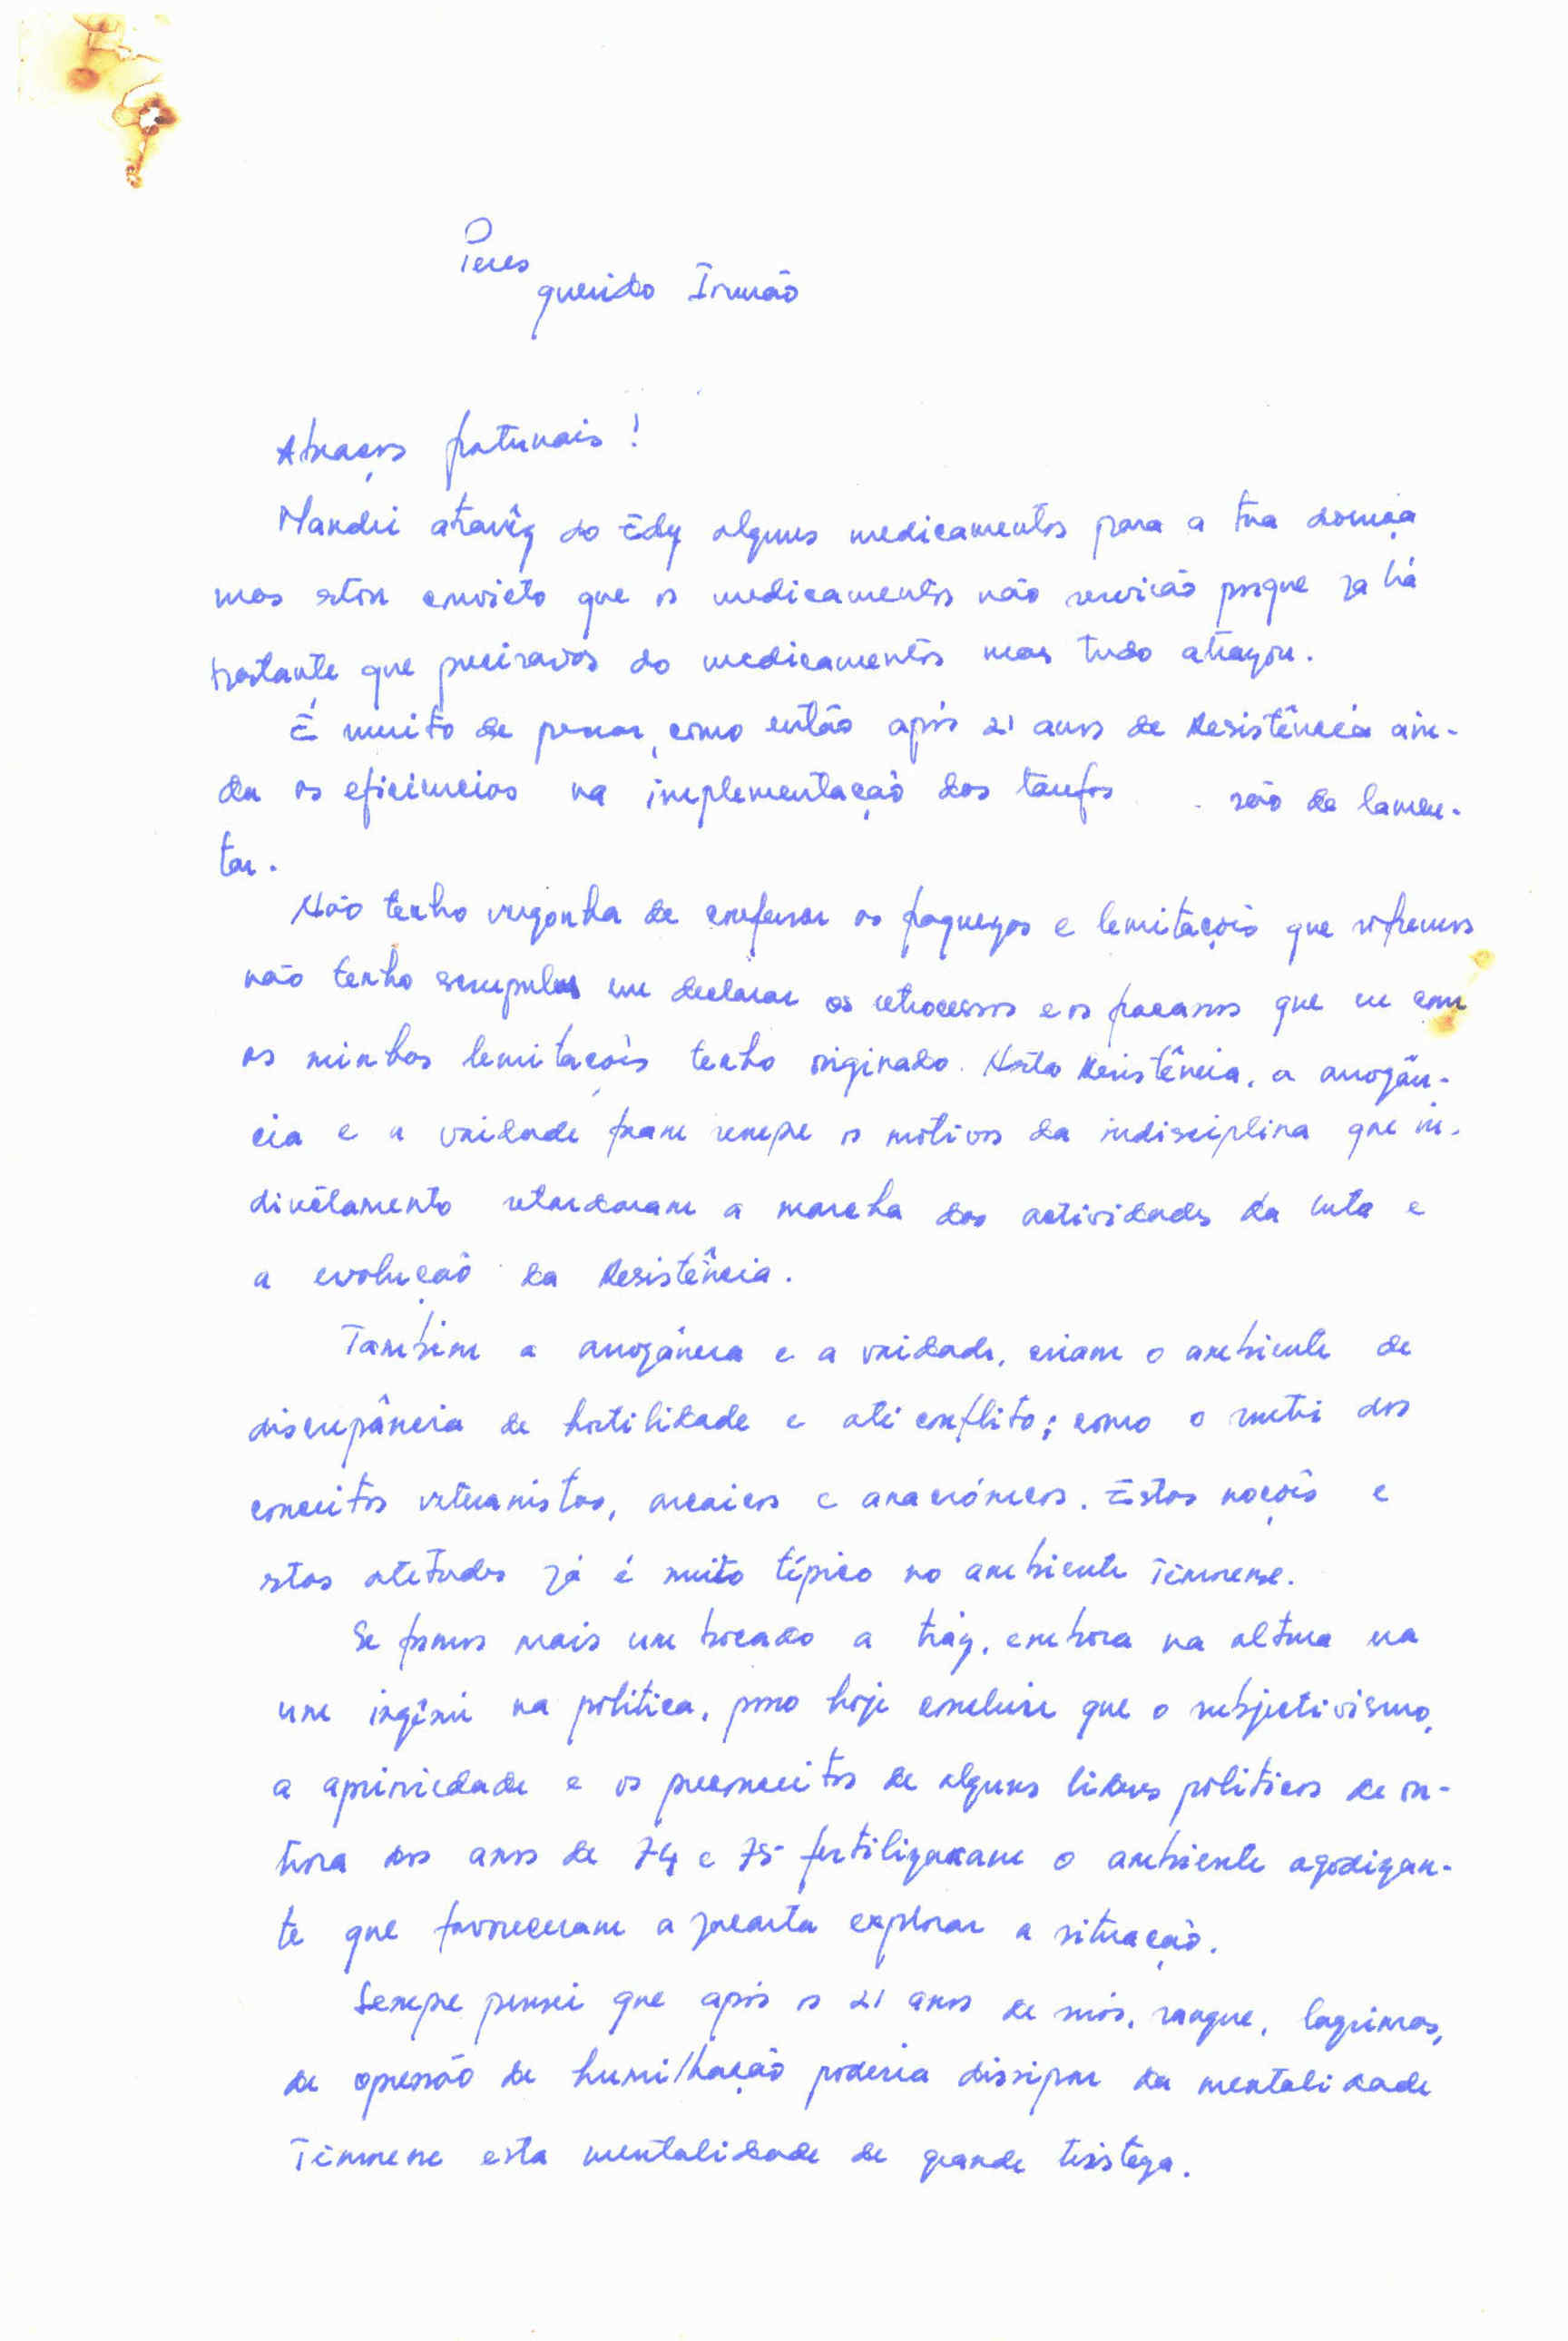 Peres
querido Irmão
Abraços fraternais!
Mandei atravêz do Edy alguns medicamentos para a tua doença
mas estou convicto que os medicamentos não servirão porque já há
bastante que precisavas do medicamentos mas tudo atrazou.
É muito de pensar, como então após 21 anos de Resistência ain-
da as eficiencias na implementação das tarefas são de lamen-
tar.
Não tenho vergonha de confessar as faquezas e lemitaçois que sofremos
não tenho scrupulos em declarar os retrocessos e os facassos que eu com
as minhas lemitaçois tenho originado. Nesta Resistência, a arrogân-
cia e a vaidade foram sempre os motivos da indisciplina que in-
dirêtamente retardaram a marcha das actividades da luta e
a evolução da Resistência.
Também a arrogância e a vaidade, criam o ambiente de
discrepância de hostilidade e até conflito; como o meti dos
conceitos veteranistas, arcaicos e anacrónicos. Estas noçois e
estas atetudes já é muito típico no ambiente Timorense.
Se formos mais um bocado a tráz, embora na altura era
um ingénui na política, posso hoje concluir que o subjectivismo,
a aprioriedade e os preconceitos de alguns lideres politicos de ou-
trora dos anos de 74 e 75 fertilizaram o ambiente agodizan-
te que favoreceram a Jacarta explorar a situação.
Sempre pensei que após os 21 anos de suór, sangue, lagrimas,
de opressão de humilhação poderia dissipar da mentalidade
Timorense esta mentalidade de grande tristeza.